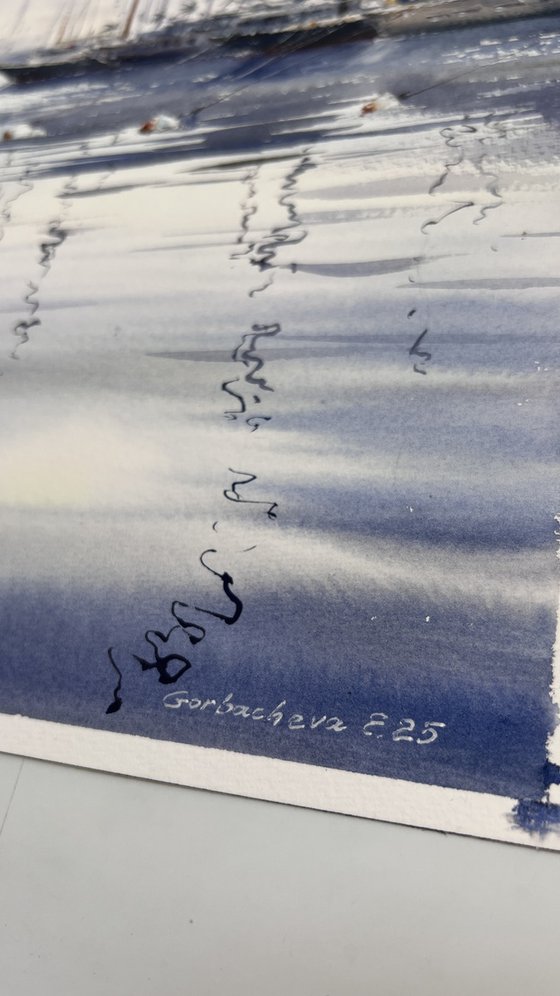 Gorbacheva E.25